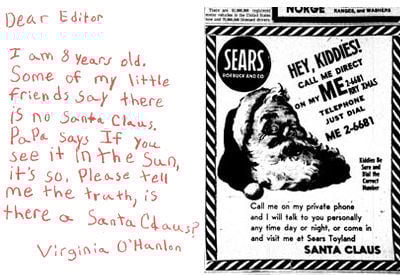 Dear Editor
I am 8 years old.
Some of my little
friends say there
is no Santa Claus.
PaPa says If you
see it in the Sun,
it's so. Please tell
me the truth, is
there a Santa Claus?
Virginia O'Hanlon
There are 55,000,000 registered
motor vehicles in the United States
now and 75,000,000 licensed drivers.
NORGE
RANGES, and WASHERS
SEARS
ROEBUCK AND CO
HEY, KIDDIES!
CALL ME DIRECT
ON MY MERRY XMAS
2-6681
TELEPHONE
JUST DIAL
ME 2-6681
Kiddies Be
Sure and
Dial the
Correct
Number
Call me on my private phone
and I will talk to you personally
any time day or night, or come in
and visit me at Sears Toyland
SANTA CLAUS